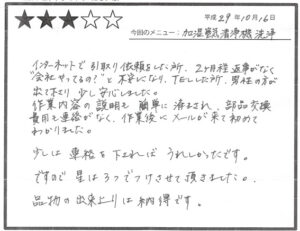 ★★★☆☆
平成29年10月16日
今回のメニュー：加湿空気清浄機洗浄
インターネットで引取り依頼をした所、2ヶ月程返事がなく
"会社やってるの？"と不安になり、TELした所、男性の方が
出て下さり少し安心しました。
作業内容の説明も簡単に済まされ、部品交換
費用も連絡がなく、作業後にメールが来て初めて
わかりました。
少しは連絡を下されば、うれしかったです。
ですので星は3つでつけさせて頂きました。
品物の出来上りは納得です。